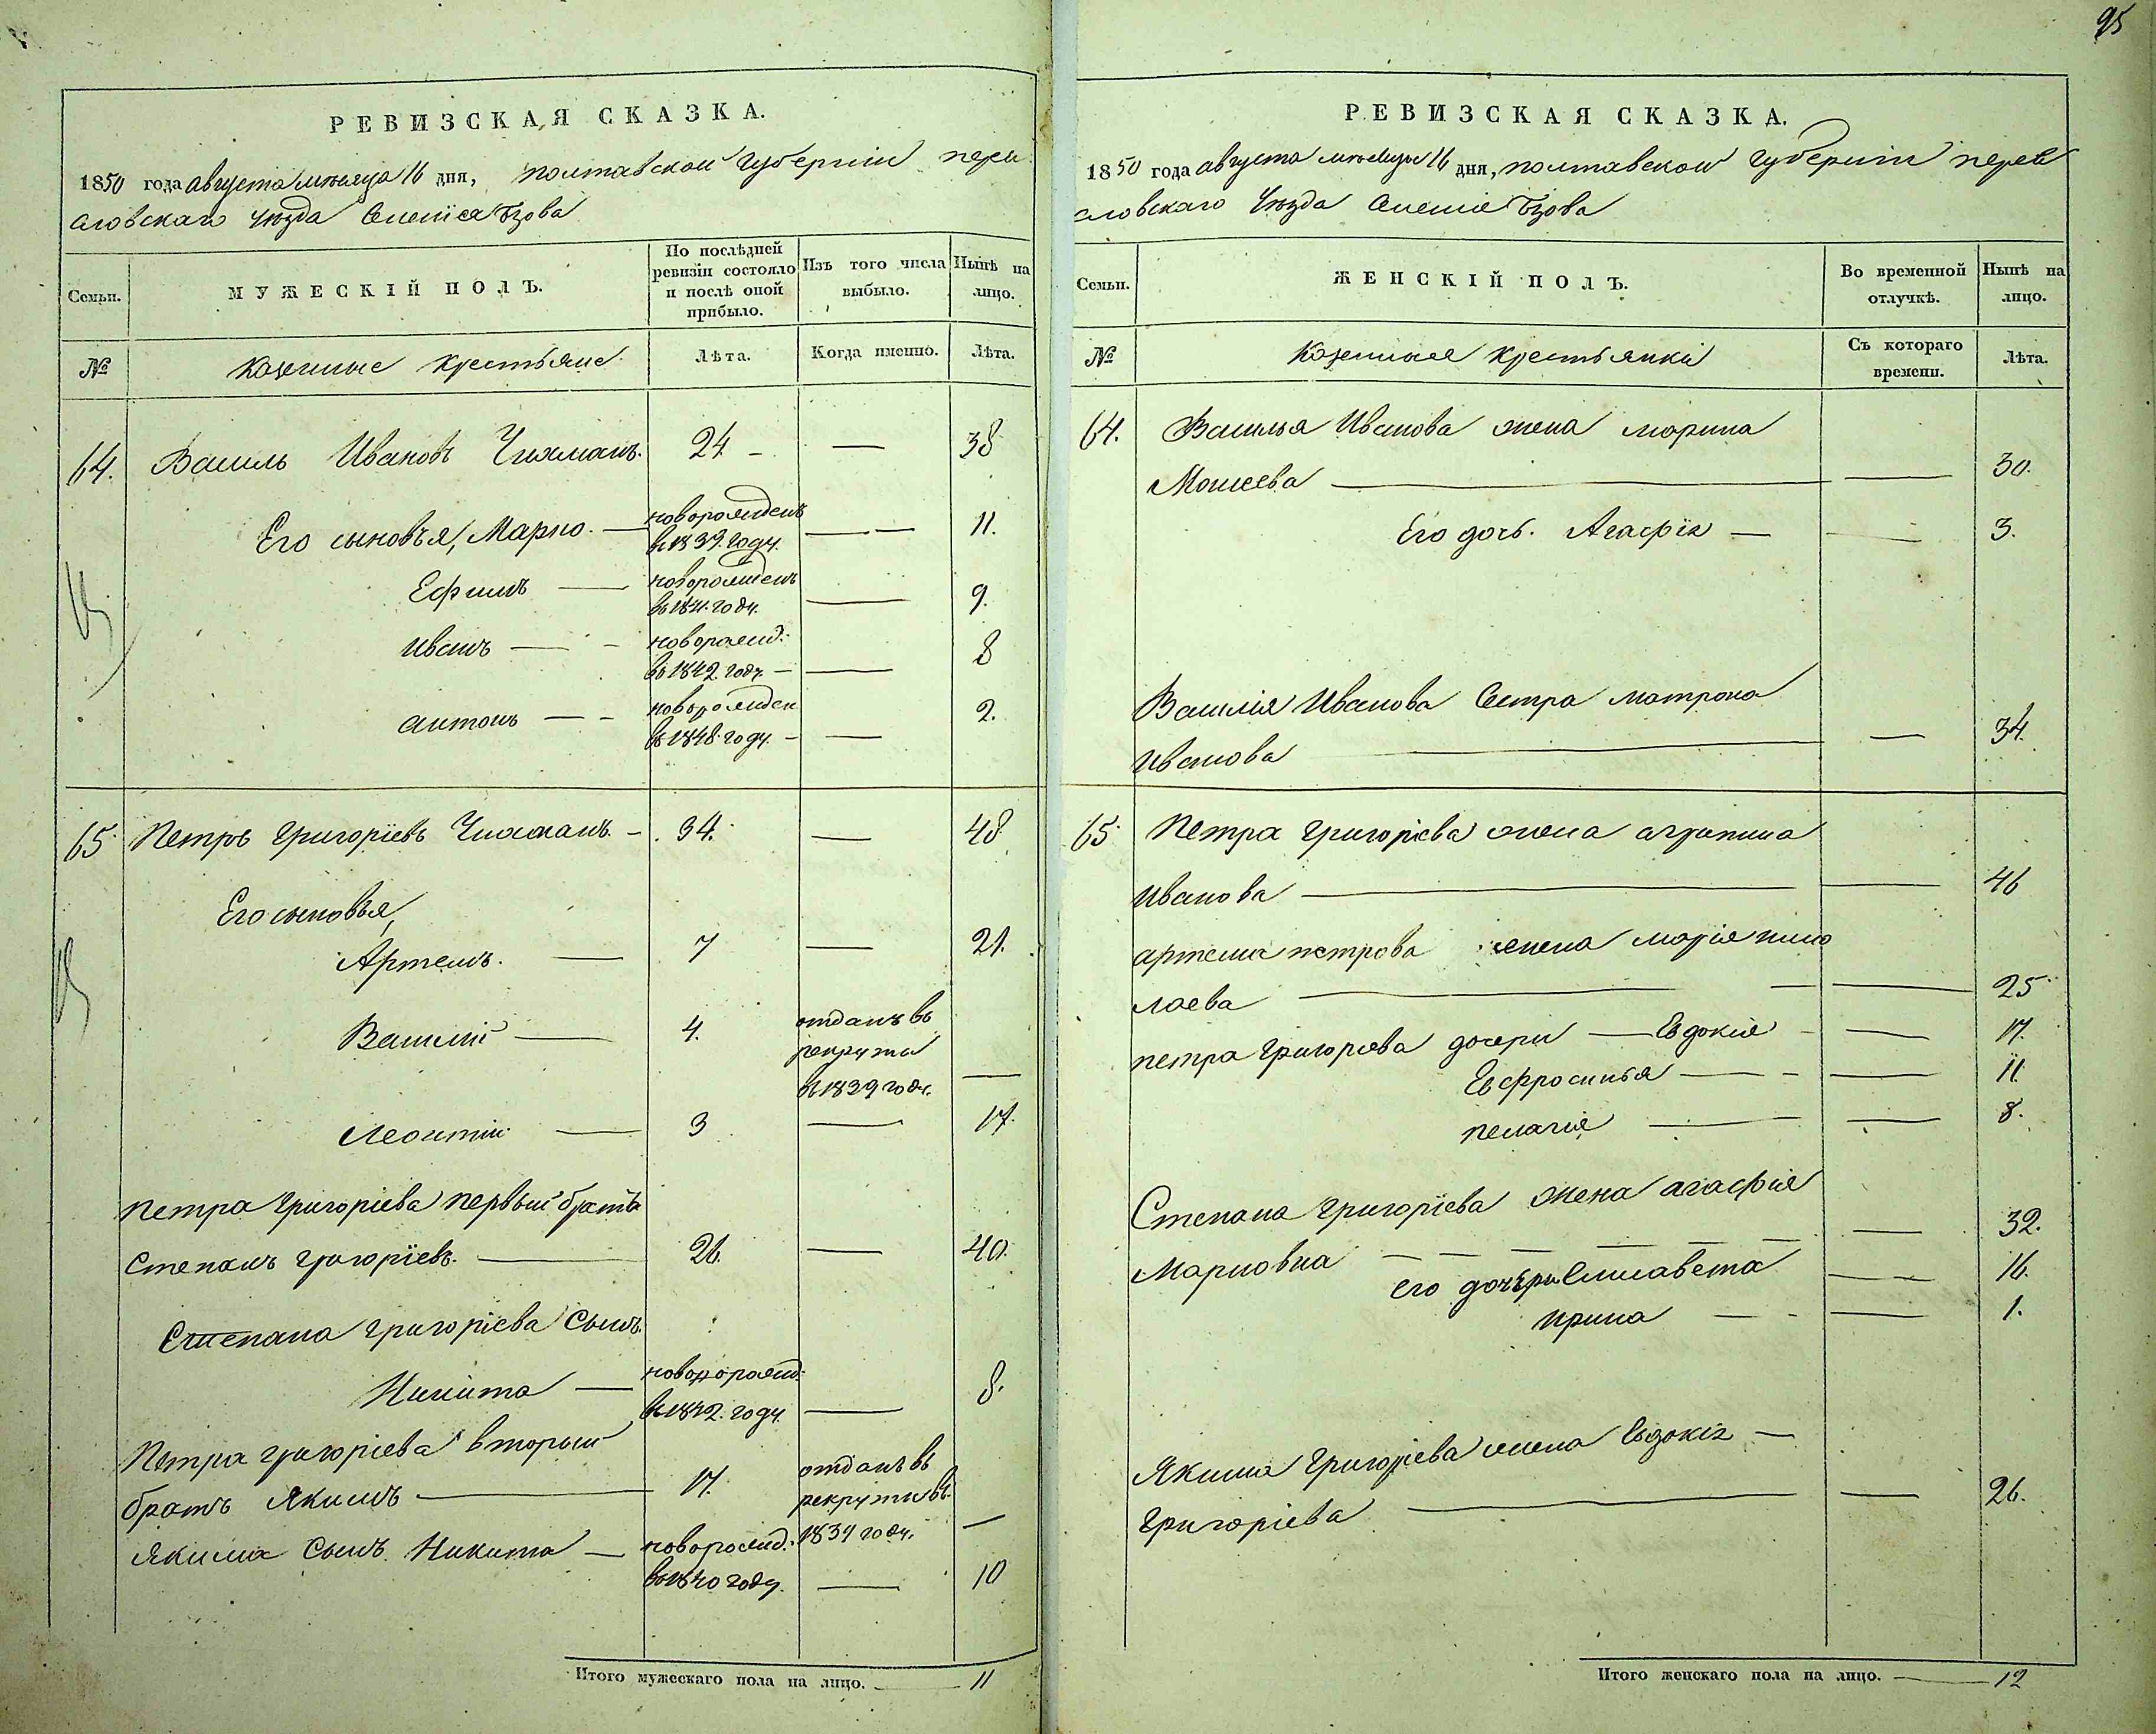 95
РЕВИЗСКАЯ СКАЗКА.
1850 года августа месяца 16 дня, полтавской губернии перея
словскаго уезда Селенія Бзова
Семьи. МУЖЕСКІЙ ПОЛЪ. По послѣдней ревизіи состояло и послѣ оной прибыло. Изъ того числа выбыло. Нынѣ на лицо.
№ Казенные крестьяне Лѣта. Когда именно. Лѣта.
64. Василь Ивановъ 24 — 38
Его сыновья, Марко — новорожденъ
въ 1839. году. — 11.
Ефимъ — новорожденъ
въ 1841. году. — 9.
Иванъ — новорожд:
въ 1842. году — 8
антонъ — новорожден
въ 1848. году — 2.
65 Петръ григоріевъ — 34. — 48
Его сыновья,
Артемъ. — 7 — 21.
Василій — 4. отданъ въ
рекруты
въ 1839 году. —
Леонтій — 3 — 17.
Петра григоріева первый братъ
Степанъ григоріевъ. — 26. — 40.
Степана григоріева Сынъ.
Никита — новорожд:
въ 1842. году. — 8.
Петра григоріева вторый
братъ Якимъ — 17. отданъ въ
рекруты въ
1834 году. —
Якима Сынъ Никита — новорожд:
въ 1840 году. — 10
Итого мужескаго пола на лицо. — 11
РЕВИЗСКАЯ СКАЗКА.
1850 года августа месяца 16 дня, полтавской губерніи перея
словскаго уезда Селенія Бзова
Семьи. ЖЕНСКІЙ ПОЛЪ. Во временной отлучкѣ. Нынѣ на лицо.
№ Казенные крестьянки Съ котораго времени. Лѣта.
64. Василья Иванова жена марина
Моисеева — — 30.
Его дочь. Агафія — — 3.
Василія Иванова Сестра матрона
Иванова — — 34.
65 Петра григоріева жена агрипина
Иванова — — 46
артема петрова жена марія нико
лаева — — 25
петра григорьева дочери — Евдокія — 17.
Евфросинья — — 11.
пелагія — — 8.
Степана григоріева жена агафія
Марковна — — 32.
его дочери Елисавета — 16.
ирина — — 1.
Якима Григоріева жена Евдокія —
Григоріева — — 26.
Итого женскаго пола на лицо. — 12